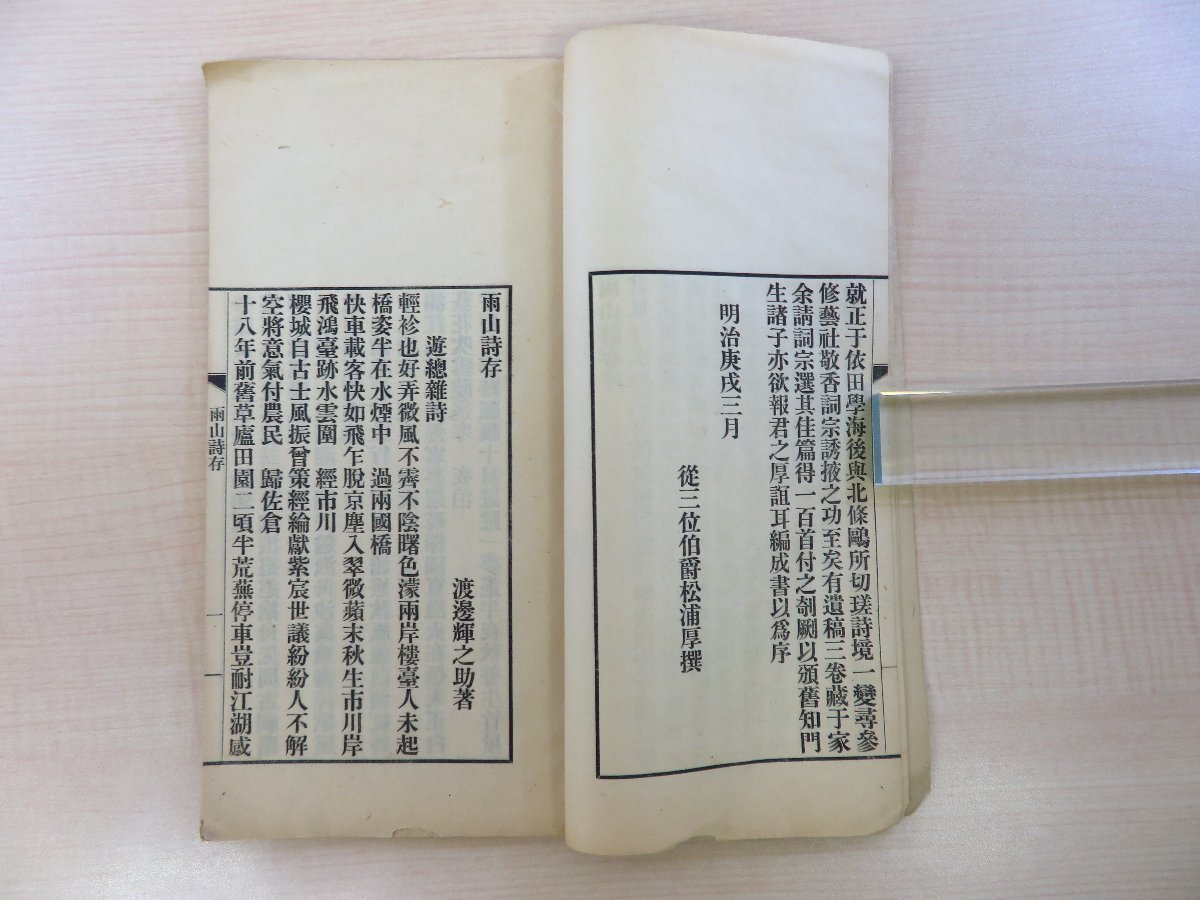 就正于依田學海後與北條鷗所切瑳詩境一變尋參
修藝社敬香詞宗誘掖之功至矣有遺稿三卷藏于家
余請詞宗選其佳篇得一百首付之剞劂以頒舊知門
生諸子亦欲報君之厚誼耳編成書以爲序
明治庚戌三月
從三位伯爵松浦厚撰
雨山詩存
渡邊輝之助著
遊總雜詩
輕衫也好弄微風不霽不陰曙色濛兩岸樓臺人未起
橋姿半在水煙中　過兩國橋
快車載客快如飛乍脫京塵入翠微蘋末秋生市川岸
飛鴻臺跡水雲圍　經市川
櫻城自古士風振曾策經綸獻紫宸世議紛紛人不解
空將意氣付農民　歸佐倉
十八年前舊草廬田園二頃半荒蕪停車豈耐江湖感
雨山詩存
一